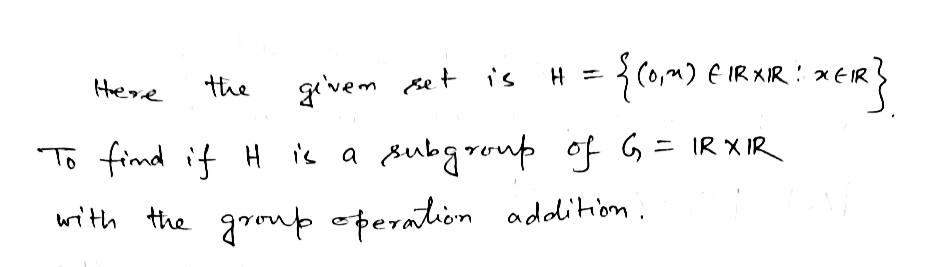 Here the given set is H = {(0,x) ∈ ℝ×ℝ : x∈ℝ}.
To find if H is a subgroup of G = ℝ×ℝ
with the group operation addition.